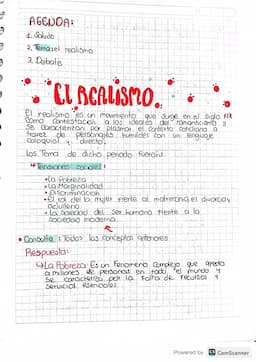 AGENDA:
1. Saludo
2. Tema: el realismo
3. Debate
EL REALISMO.
El realismo es un movimiento que surge en el siglo XIX
como contestación a los ideales del romanticismo y
se caracterizan por plasmar el contexto cotidiano a
través de personajes humildes con un lenguaje
coloquial y directo.
Los Tema de dicho periodo fueron:
Tensiones sociales:
• La Pobreza
• La Marginalidad
• Discriminación
• El rol de la mujer frente al matrimonio, el divorcio y
adulterio
• La sociedad del ser humano frente a la
sociedad moderna.
• Consulta: Todos los conceptos anteriores
Respuesta:
La Pobreza: Es un Fenómeno complejo que afecta
a millones de personas en todo el mundo y
se caracteriza por la falta de recursos y
servicios esenciales.
Powered by CS CamScanner